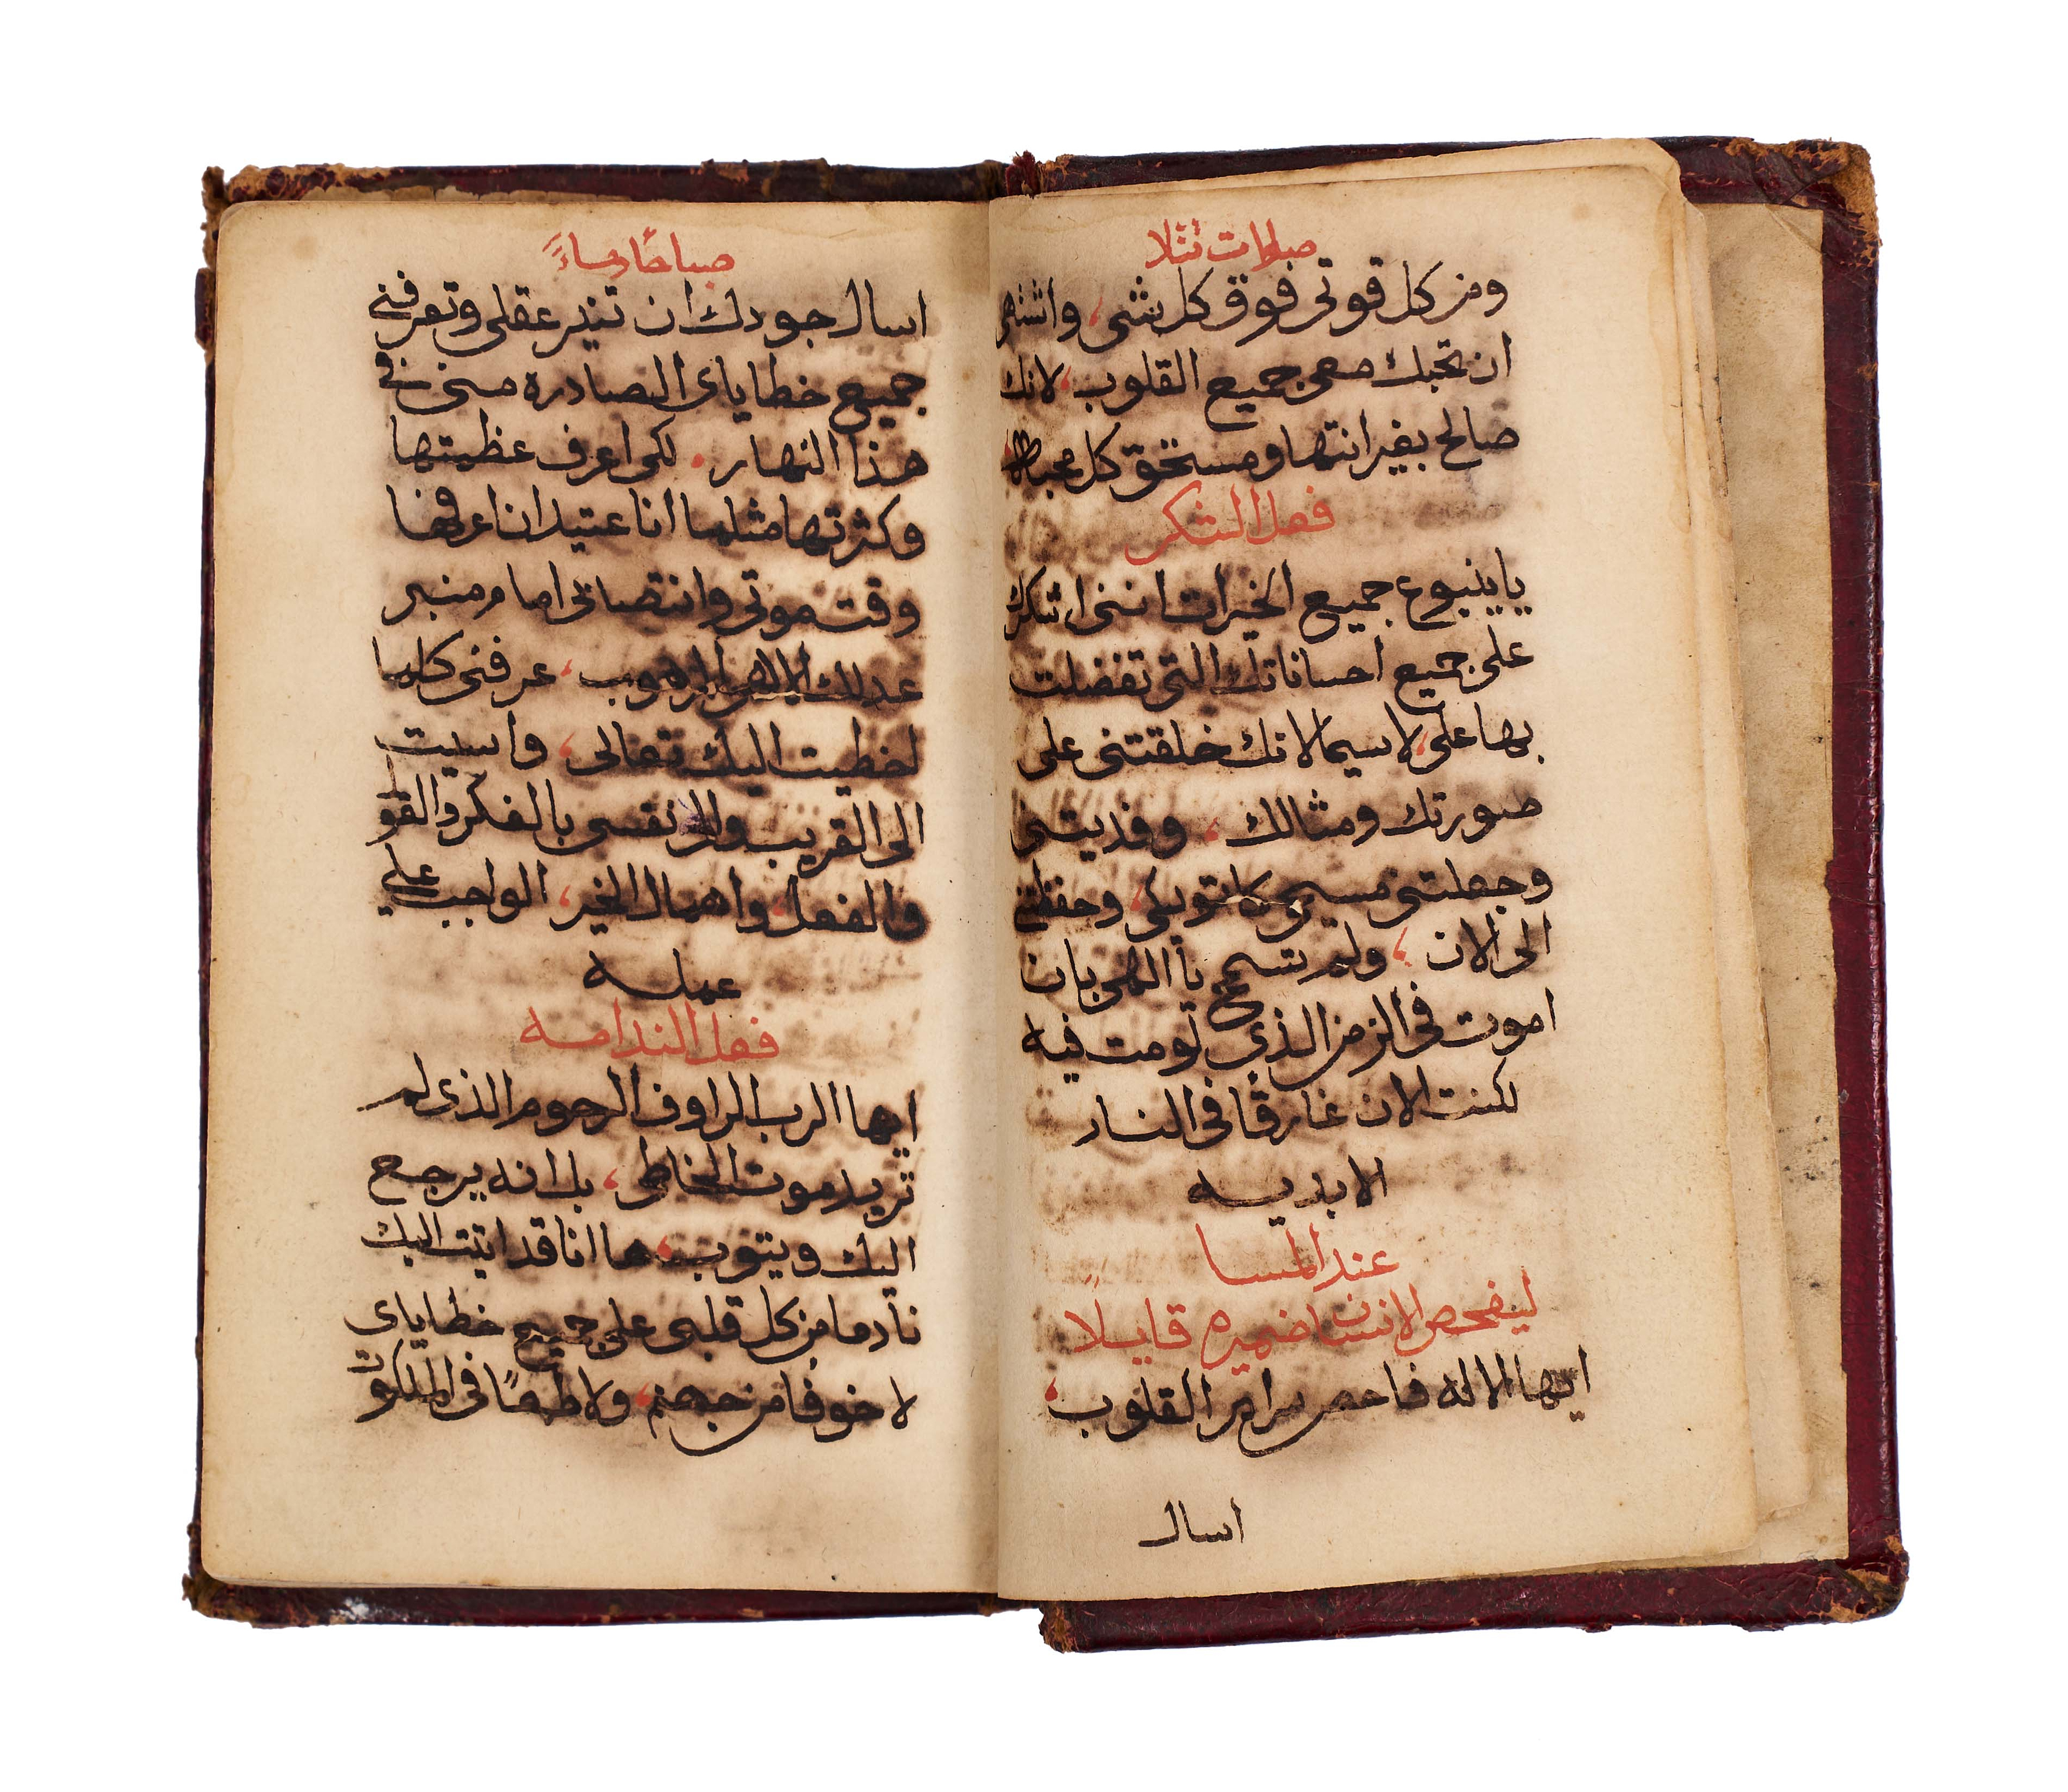 صلوات تتلا
ومن كل قوتى فوق كل شى، واشتهى
ان تحبك معى جميع القلوب، لانك
صالح بغير انتها ومستحق كل محبه
فعل الشكر
يا ينبوع جميع الخيرات اننى اشكرك
على جميع احساناتك التى تفضلت
بها على، لاسيما لانك خلقتنى على
صورتك ومثالك، وفديتنى
وجعلتنى مسيحى كاتوليكى، وحفظتنى
الى الان، ولم تسمح يا الهى بان
اموت فى الزمن الذى لو مت فيه
لكنت الان غارقًا فى النار
الابديه
عند المسا
ليفحص الانسان ضميره قايلًا
ايها الاله فاحص سراير القلوب،
اسال
صباحًا ومساءً
اسال جودك ان تنير عقلى وتعرفنى
جميع خطاياى الصادره منى فى
هذا النهار. لكى اعرف عظيتها
وكثرتها مثلما انا عتيد ان اعرفها
وقت موتى وانتصابى امام منبر
عدلك الالهى المرهوب، عرفنى كلما
اخطيت اليك تعالى، واسيت
الى القريب والى نفسى بالفكر والقول
والفعل، واهمال الخير، الواجب على
عمله
فعل الندامه
ايها الرب الراوف الرحوم الذى لم
تريد موت الخاطى، بل انه يرجع
اليك ويتوب، ها انا قد اتيت اليك
نادما من كل قلبى على جميع خطاياى
لا خوفا من جهنم، ولا طمعًا فى الملكوت